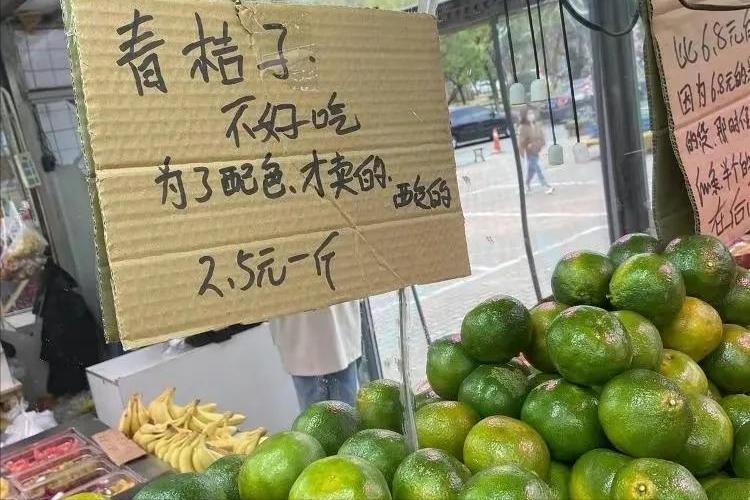 青桔子.
不好吃
为了配色、才卖的.
酸的
2.5元一斤
比6.8元
因为6.8元的
的货,那时